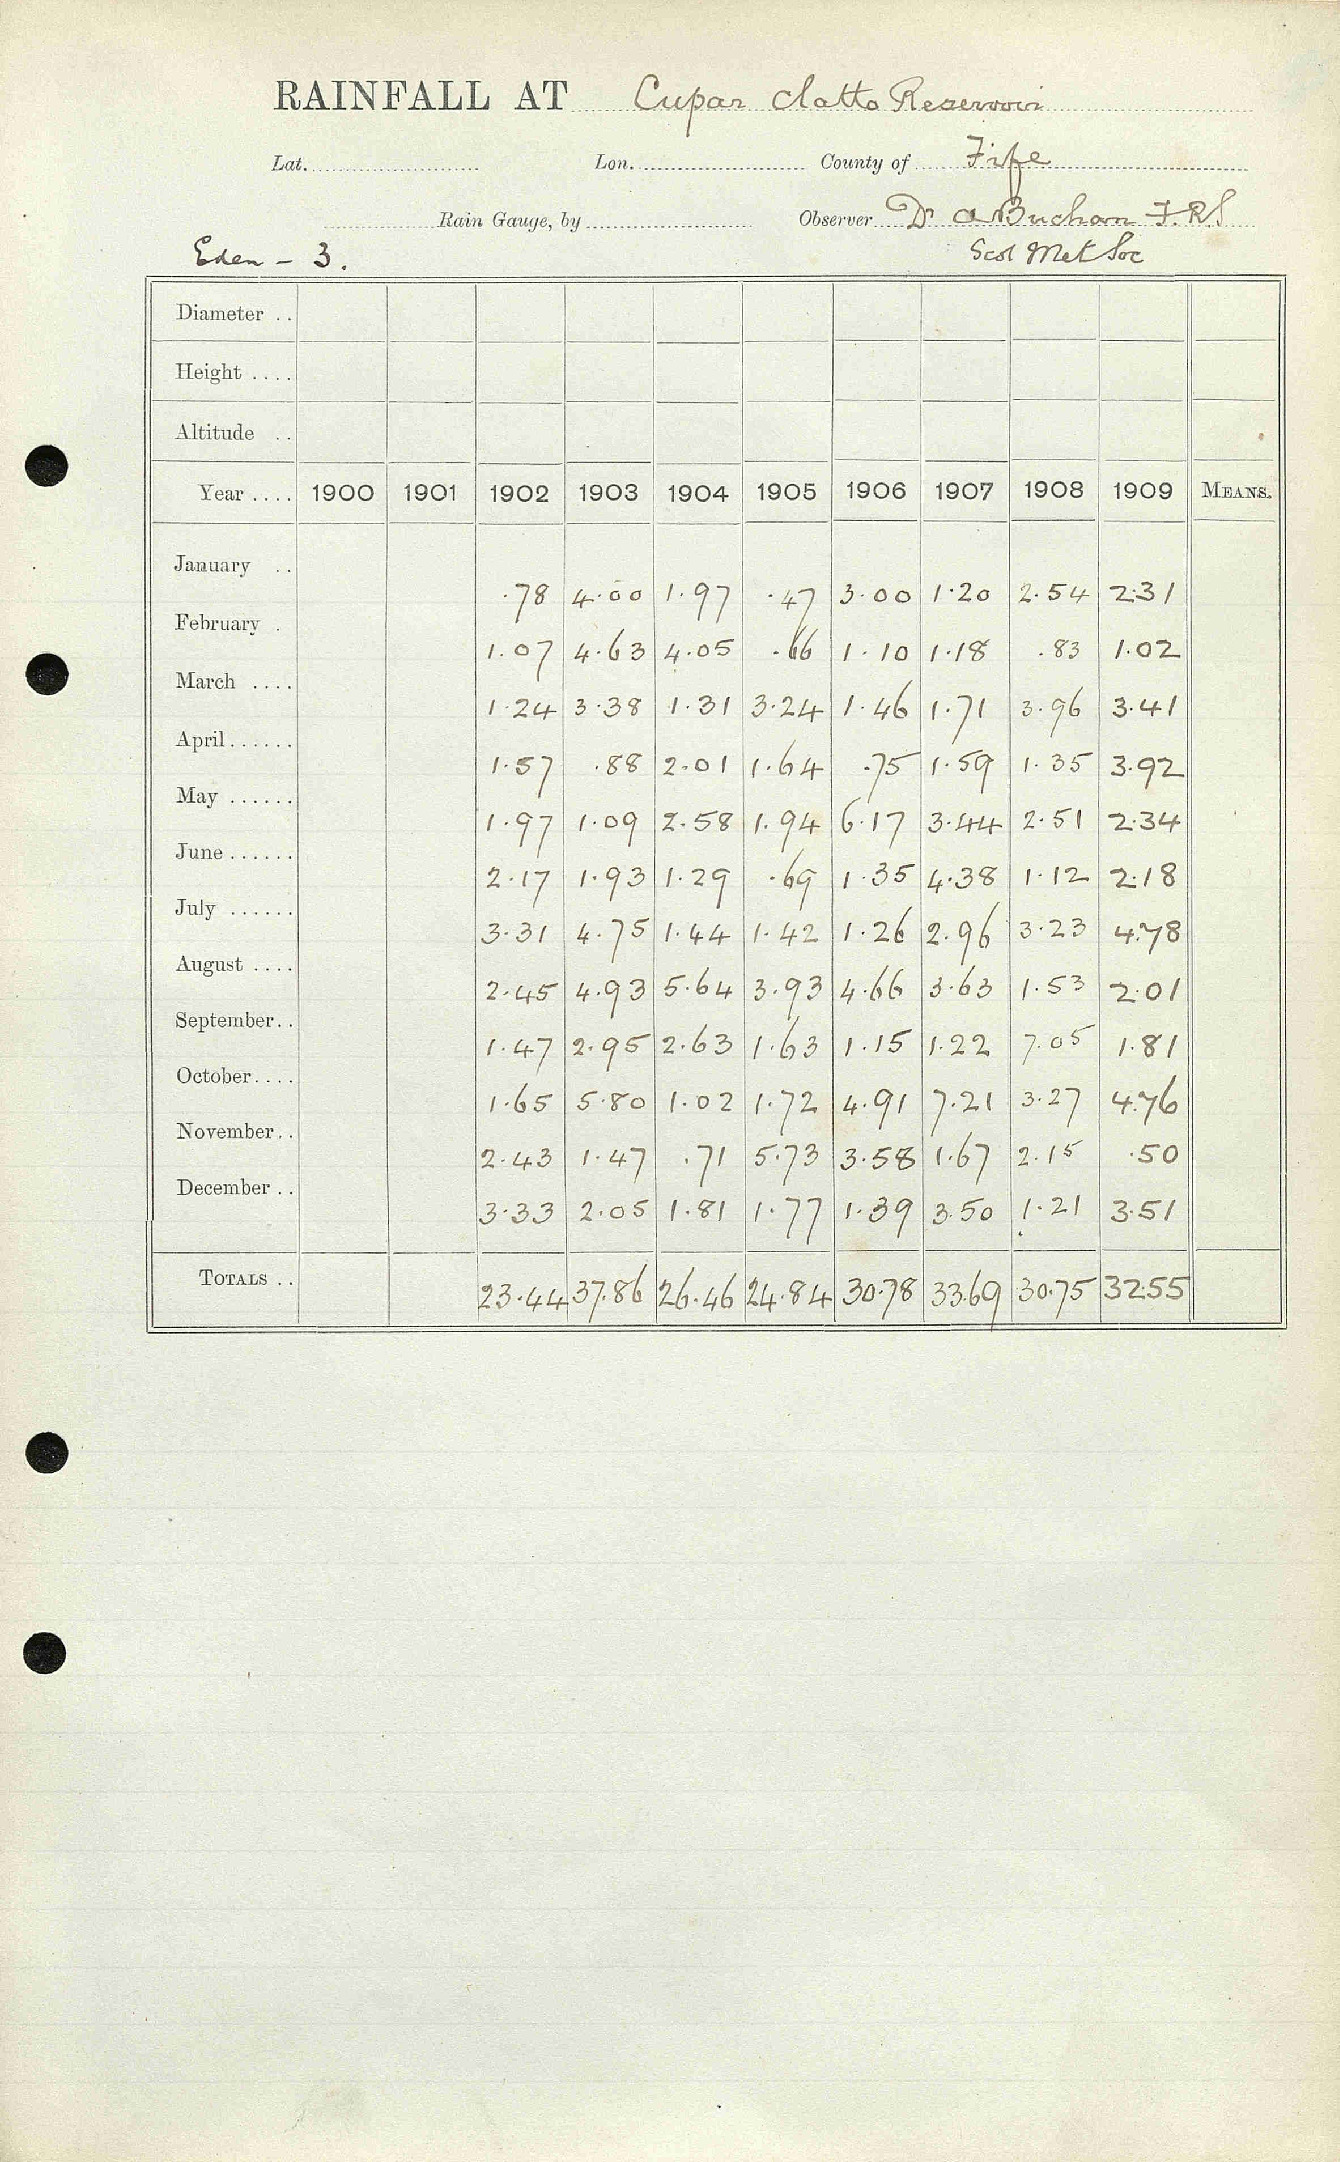 RAINFALL AT Cupar Clatto Reservoir
Lat. Lon. County of Fife
Rain Gauge, by Observer Dr A Buchan F.R.S
Eden - 3. Scot Met Soc
Diameter ..
Height ....
Altitude ..
Year .... 1900 1901 1902 1903 1904 1905 1906 1907 1908 1909 MEANS.
January .. .78 4.00 1.97 .47 3.00 1.20 2.54 2.31
February . 1.07 4.63 4.05 .66 1.10 1.18 .83 1.02
March .... 1.24 3.38 1.31 3.24 1.46 1.71 3.96 3.41
April...... 1.57 .88 2.01 1.64 .75 1.59 1.35 3.92
May ...... 1.97 1.09 2.58 1.94 6.17 3.44 2.51 2.34
June...... 2.17 1.93 1.29 .69 1.35 4.38 1.12 2.18
July ...... 3.31 4.75 1.44 1.42 1.26 2.96 3.23 4.78
August .... 2.45 4.93 5.64 3.93 4.66 3.63 1.53 2.01
September.. 1.47 2.95 2.63 1.63 1.15 1.22 7.05 1.81
October.... 1.65 5.80 1.02 1.72 4.91 7.21 3.27 4.76
November.. 2.43 1.47 .71 5.73 3.58 1.67 2.15 .50
December .. 3.33 2.05 1.81 1.77 1.39 3.50 1.21 3.51
TOTALS .. 23.44 37.86 26.46 24.84 30.78 33.69 30.75 32.55